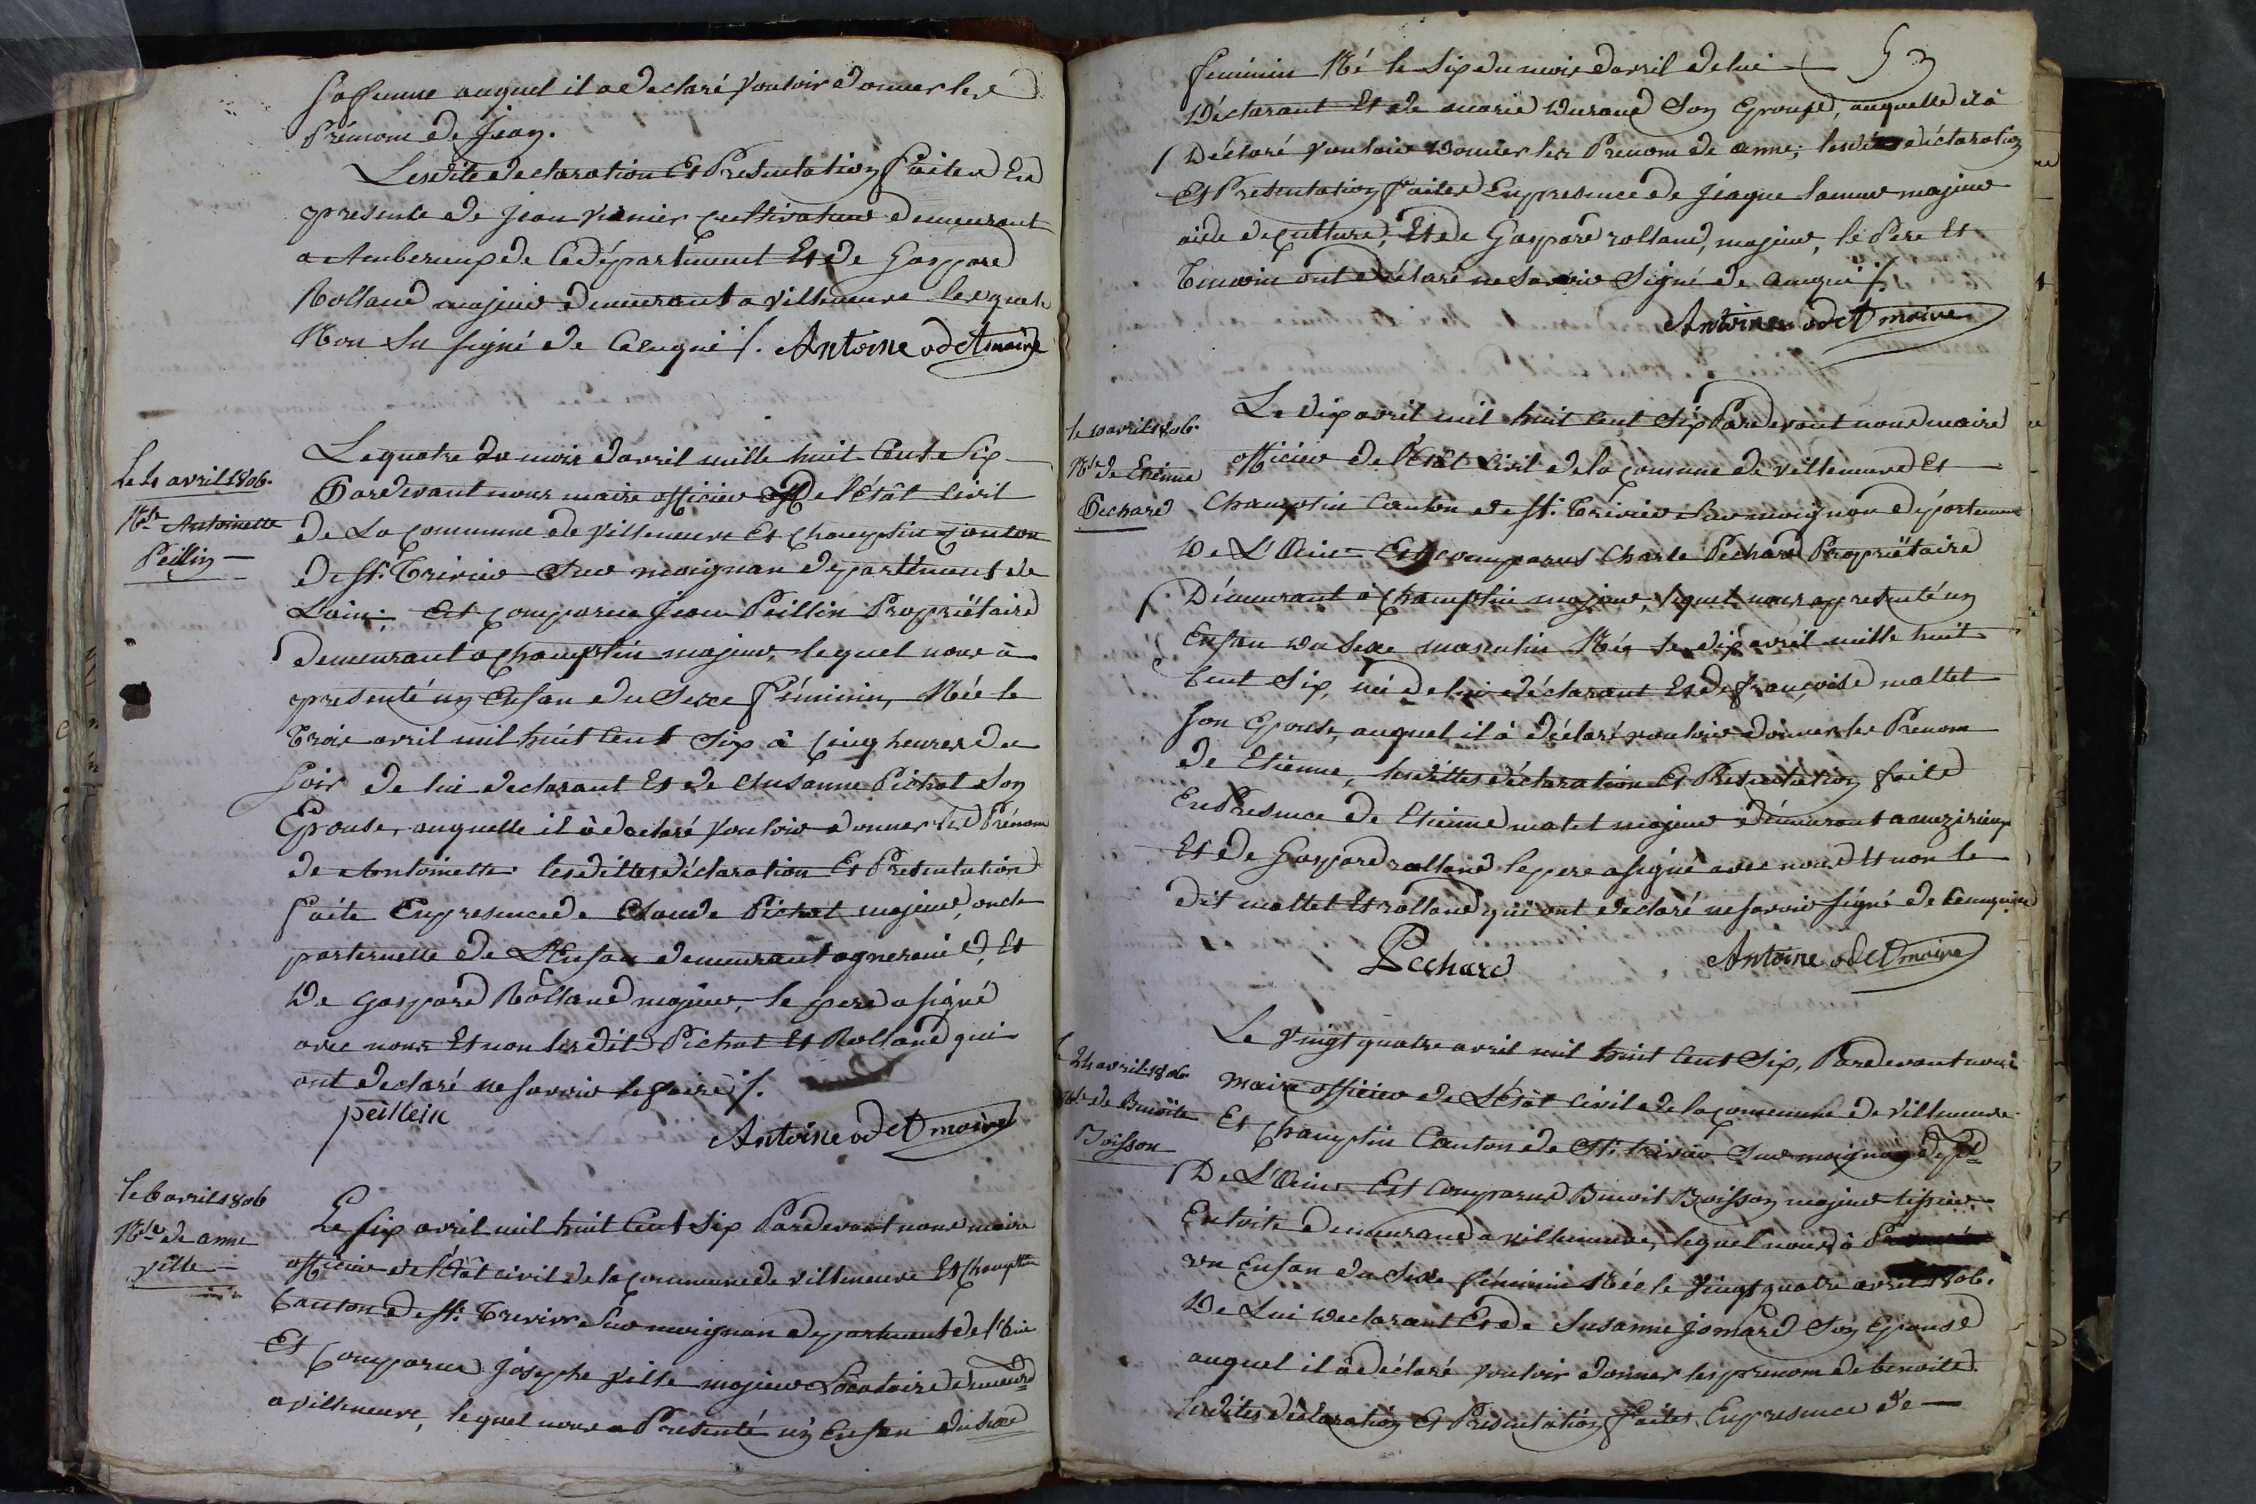 sa femme auquel il a declaré vouloir donner les
Prénom de Jean.
Lesdite declaration Et Presentation faites En
presente de Jean vianier cultivateur demeurant
a Amberieux de ce département Et de Gaspard
Rolland majeur demeurant a villeneuve lesquels
Non Su signé de ce enquis /. Antoine odet maire
le 4 avril 1806.
Nce Antoinette
Peillin
Le quatre du mois d'avril mille huit Cent Six
Pardevant nous maire officier de l'état Civil
de La Commune de Villeneuve Et champtin Canton
de St. Trivier Sur moignan departement de
L'ain; Est comparu Jean Peillin Propriëtaire
demeurant a champtin majeur, lequel nous à
presenté un Enfan du Sexe féminin, Née le
trois avril mil huit Cent Six à Cinq heures du
Soir de lui declarant Et de Susanne Pichat Son
Epouse, auquelle il à declaré vouloir donner les Prénom
de Antoinette. lesdittes déclaration Et Presentation
faite En presence de Claude Pichat majeur, oncle
parternelle de L'Enfan demeurant agnereins, Et
De Gaspard Rolland majeur, le pere a signé
avec nous Et non lesdit Pichat Et Rolland qui
ont declaré ne savoir le faire /.
peillein
Antoine odet maire
le 6 avril 1806
Nce de anne
ville
Le six avril mil huit Cent Six Pardevant nous maire
officier de l'Etat civil de la Commune de Villeneuve Et Champtin
Canton de St. Trivier Sur moignan departement de l'Ain
Est Comparu Josephe ville majeur Locataire demeurd
a villeneuve, lequel nous a Presenté un Enfan du Sexe
53
feminin Né le Six du mois d'avril de lui
Déclarant Et de marie Durand Son Epouse, auquelle il à
Déclaré vouloir Donner les Prenom de anne; lesdites déclaration
Et Presentation faites En presence de Jiaque lamur majeur
aide de culture, Et de Gaspard rolland, majeur, le Pere Et
Temoin ont declaré ne Savoir Signé de anquis /.
Antoine odet maire
le 10 avril 1806.
Nce de Etienne
Pechard
Le dix avril mil huit Cent Six Pardevant nous maire
officier de l'Etat Civil de la Commune de villeneuve Et
Champtin Canton de St. Trivier Sur moignan département
De L'Ain Est comparus Charle Pechard Propriëtaire
Démeurant à Champtin majeur, lequel nous a presenté un
Enfan du Sexe masculin Né le dix avril mille huit
Cent Six, né de lui déclarant Et de françoise mattet
son Epouse, auquel il à déclaré vouloir donner les Prenom
de Etienne, lesdittes déclaration Et Presentation faite
En Presence de Etienne matet majeur démeurant a mizirieux
Et de Gaspard rolland le pere a signé avec nous Et non le
dit mattet Et rolland qui ont declaré ne savoir signé de ce enquis
Pechard
Antoine odet maire
le 24 avril 1806
Nce de Benoite
Boisson
Le vingt quatre avril mil huit Cent Six, Pardevant nous
maire officier de L'Etat Civil de la Commune de villeneuve
Et Champtin Canton de St. trivier Sur moignan Dept
De L'Ain Est Comparus Benoit Boisson majeur tissier
En toite demeurand a villeneuve, lequel nous à Presenté
un Enfan du Sexe féminin Née le vingt quatre avril 1806.
De Lui Declarant Et de Susanne jomard Son Epouse
auquel il à déclaré vouloir donner les prenom de benoite.
lesdites déclaration Et Presentation faites En presence de